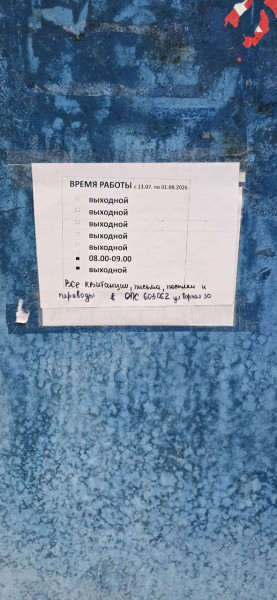 ВРЕМЯ РАБОТЫ с 13.07. по 01.08.2025
выходной
выходной
выходной
выходной
выходной
08.00-09.00
выходной
Все квитанции, письма, посылки и
переводы в ОПС 603062 ул Горная 30